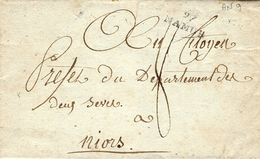 AN 9
97
NAMUR
Au Citoyen
Prefet du Departement des
deux Sevres
a
niors